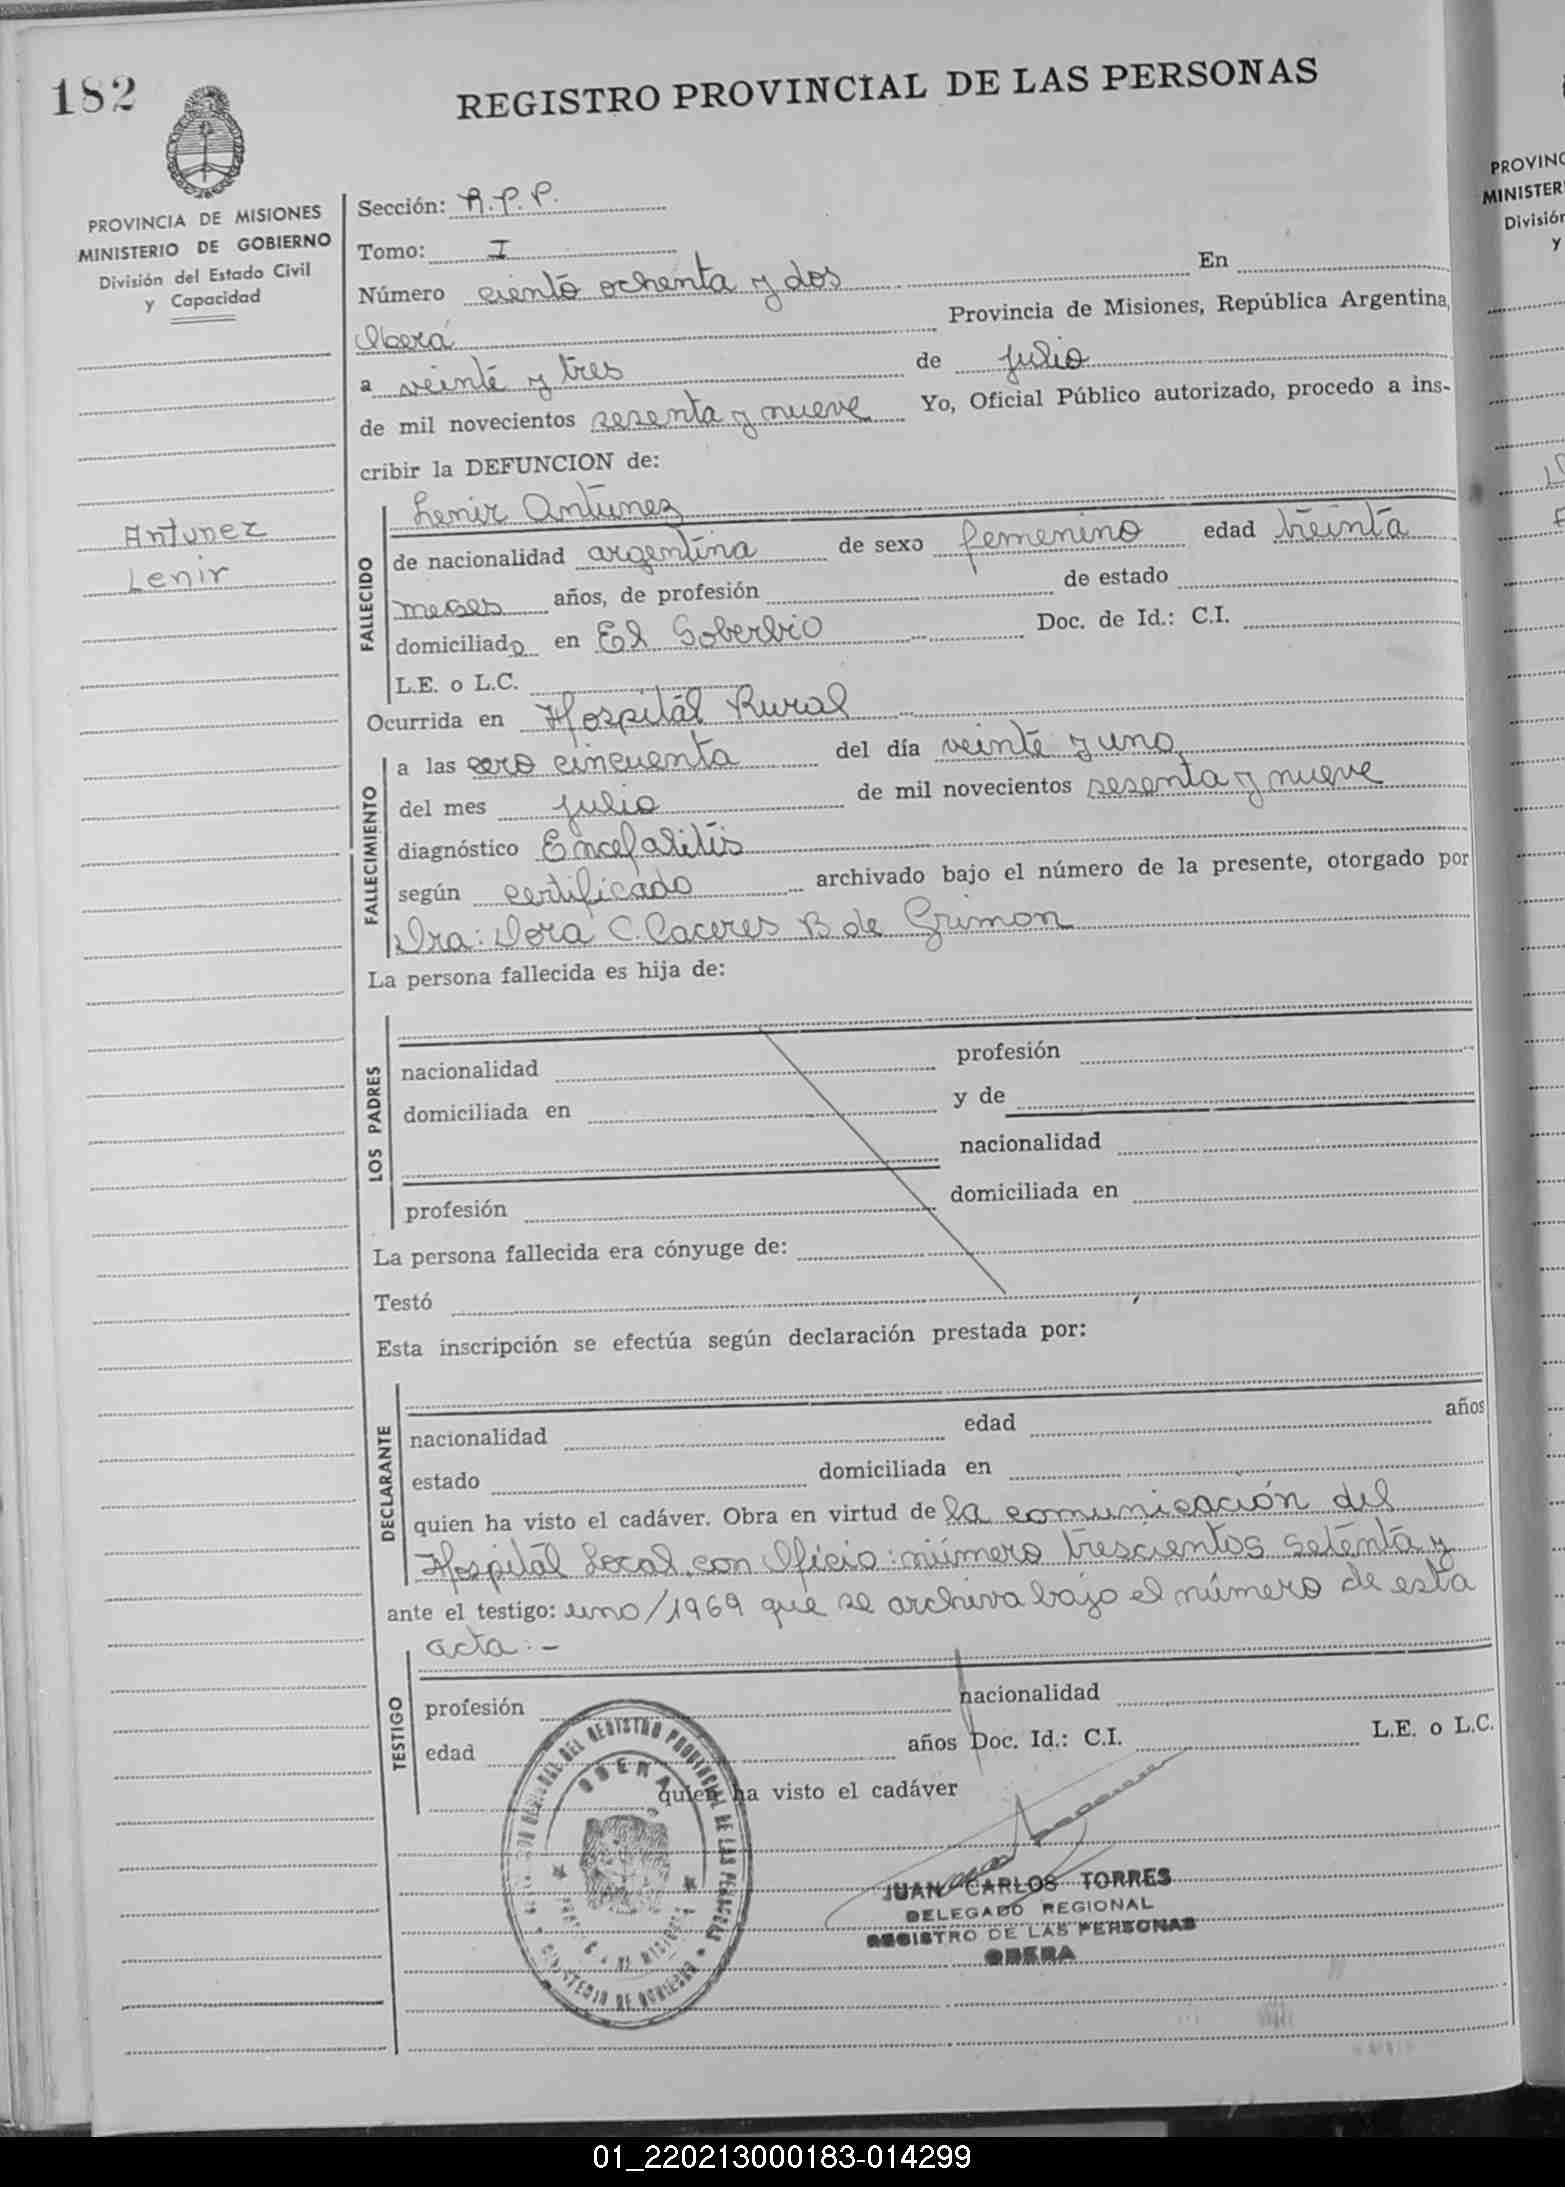 182
REGISTRO PROVINCIAL DE LAS PERSONAS
PROVINCIA DE MISIONES
MINISTERIO DE GOBIERNO
División del Estado Civil
y Capacidad
Antunez
Lenir
Sección: R.P.P.
Tomo: I
Número ciento ochenta y dos En
Oberá Provincia de Misiones, República Argentina,
a veinte y tres de julio
de mil novecientos sesenta y nueve Yo, Oficial Público autorizado, procedo a ins-
cribir la DEFUNCION de:
FALLECIDO
Lenir Antunez
de nacionalidad argentina de sexo femenino edad treinta
meses años, de profesión de estado
domiciliado en El Soberbio Doc. de Id.: C.I.
L.E. o L.C.
Ocurrida en Hospital Rural
FALLECIMIENTO
a las cero cincuenta del día veinte y uno
del mes julio de mil novecientos sesenta y nueve
diagnóstico Encefalitis
según certificado archivado bajo el número de la presente, otorgado por
Dra: Dora C. Caceres B de Grimon
La persona fallecida es hija de:
LOS PADRES
nacionalidad profesión
domiciliada en y de
nacionalidad
profesión domiciliada en
La persona fallecida era cónyuge de:
Testó
Esta inscripción se efectúa según declaración prestada por:
DECLARANTE
nacionalidad edad años
estado domiciliada en
quien ha visto el cadáver. Obra en virtud de la comunicación del
Hospital Local, con Oficio: número trescientos setenta y
ante el testigo: uno/1969 que se archiva bajo el número de esta
acta:-
TESTIGO
profesión nacionalidad
edad años Doc. Id.: C.I. L.E. o L.C.
quien ha visto el cadáver
DEL REGISTRO PROVINCIAL DE LAS PERSONAS
OBERA
MINISTERIO DE GOBIERNO
JUAN CARLOS TORRES
DELEGADO REGIONAL
REGISTRO DE LAS PERSONAS
OBERA
PROVINC
MINISTER
División
y
01_220213000183-014299